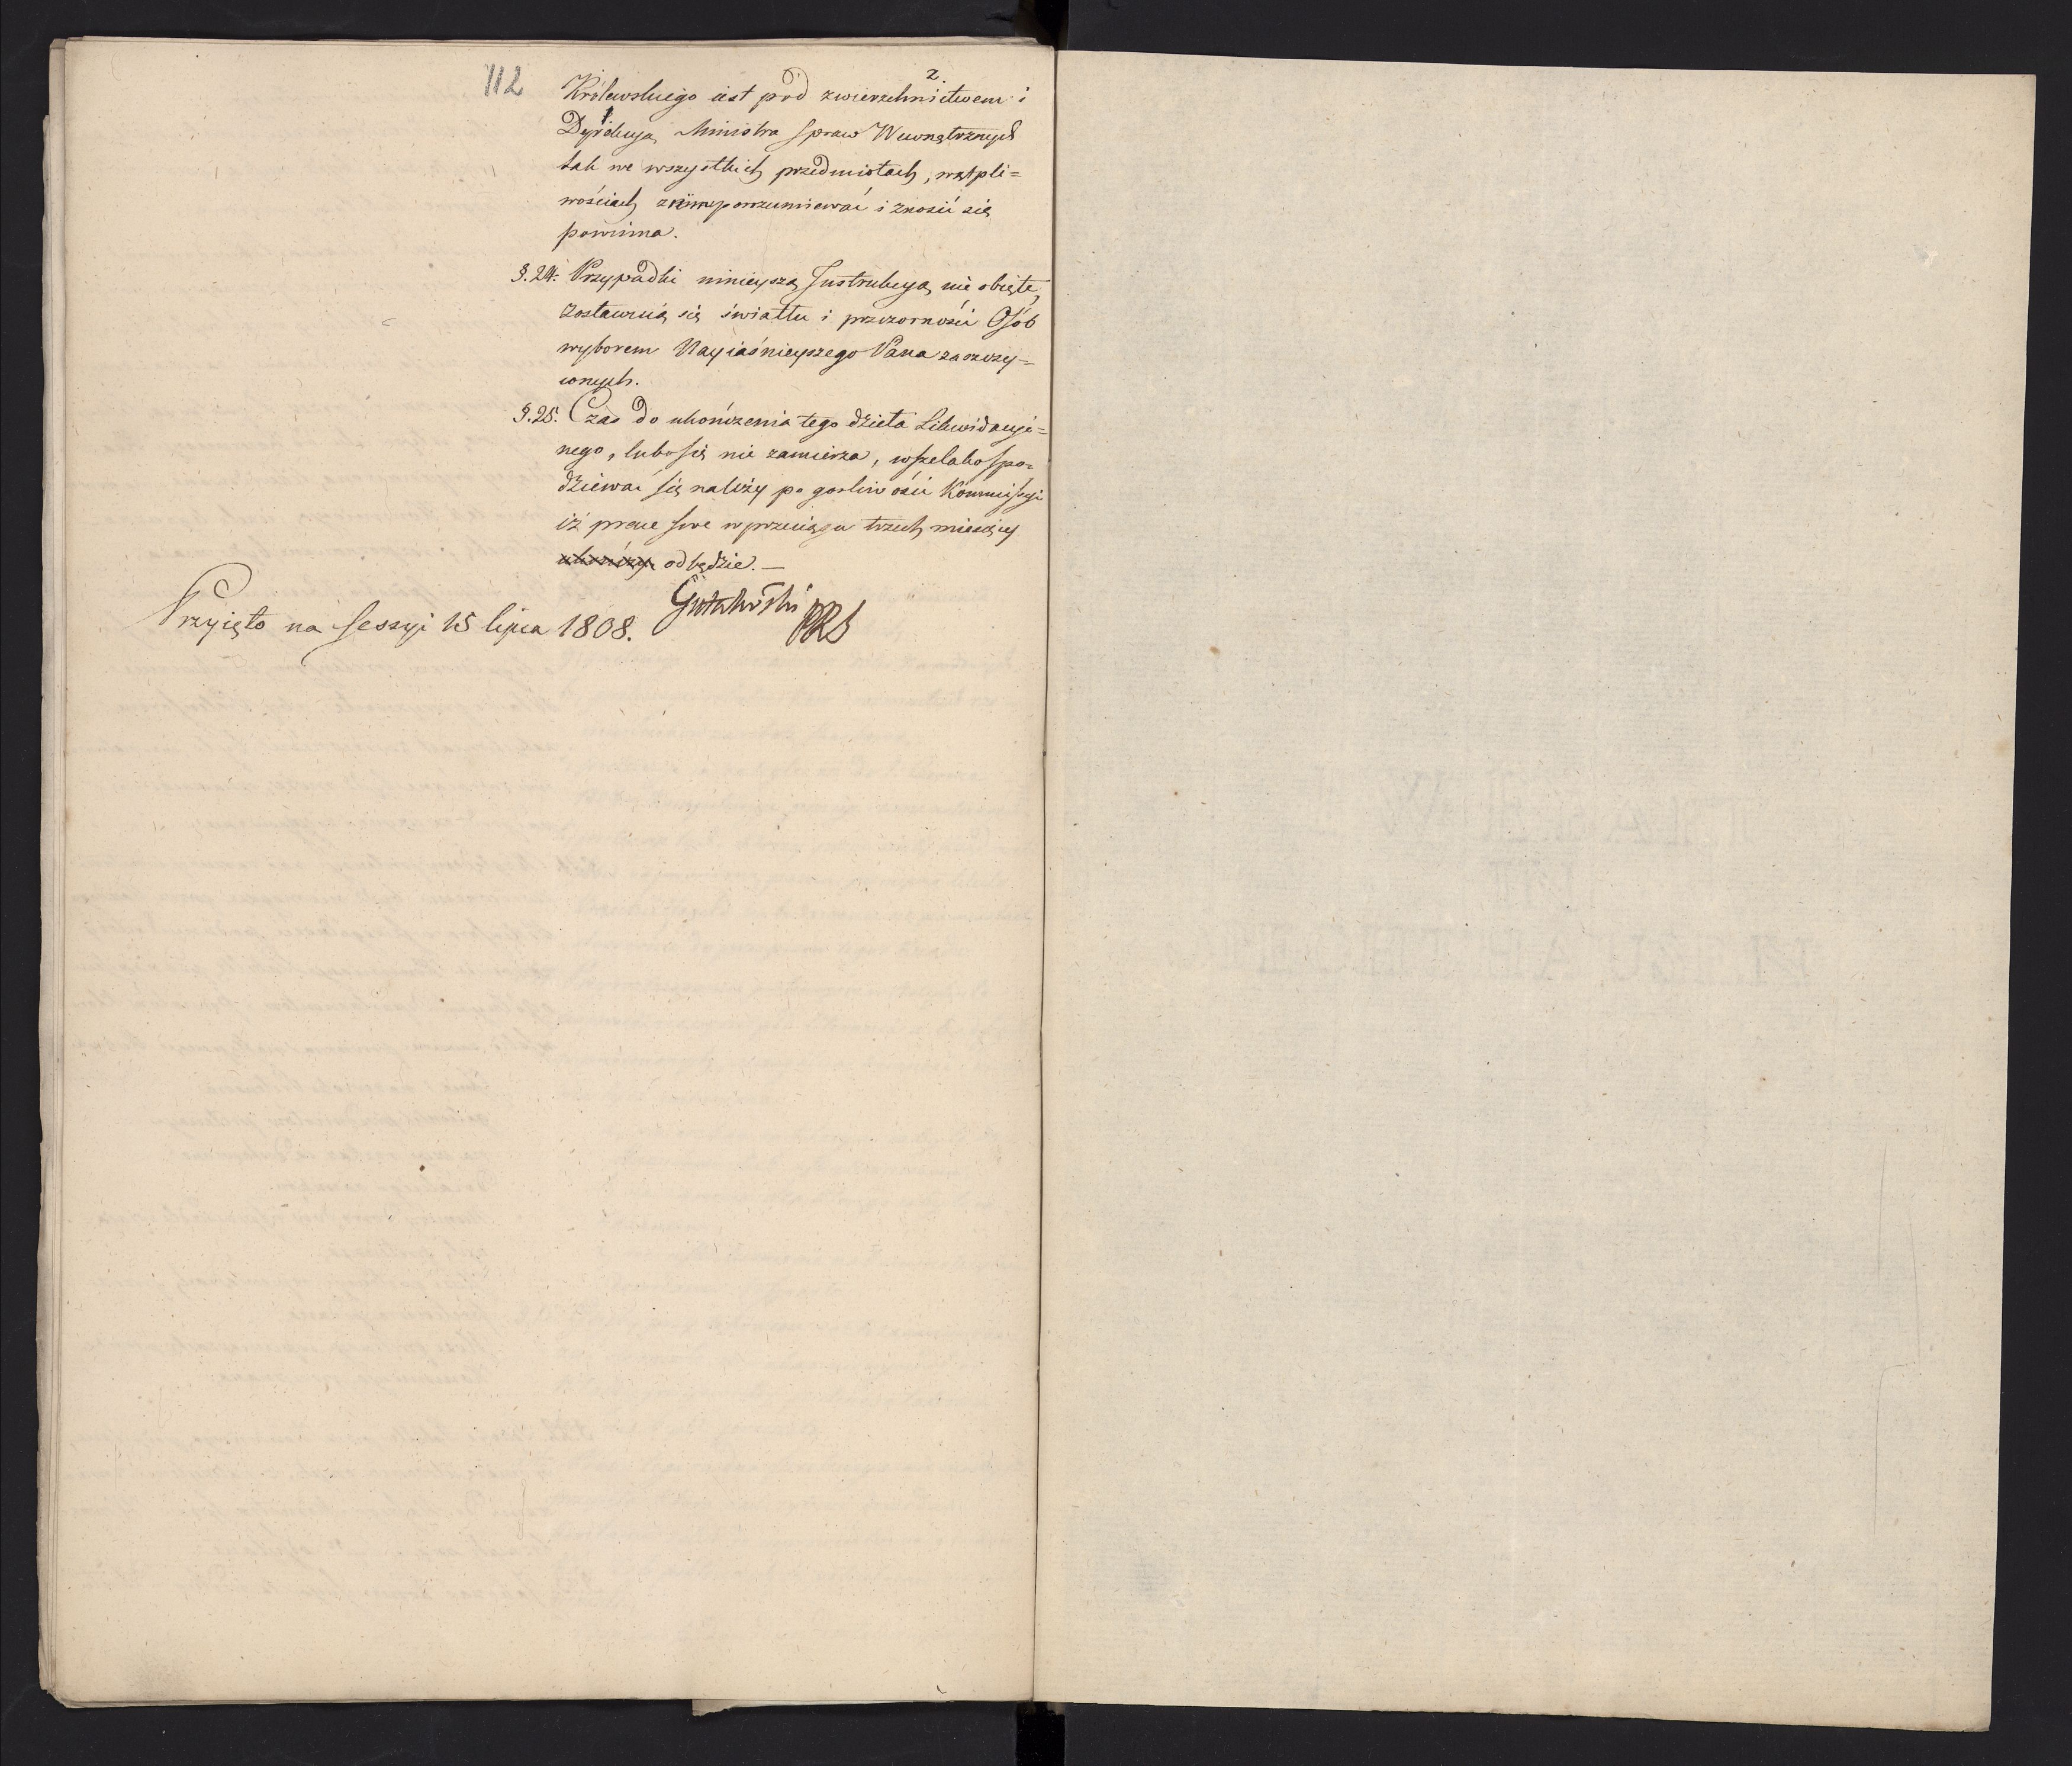 112
2.
Królewskiego iest pod zwierzchnictwem i
Dyrekcyą Ministra Spraw Wewnętrznych
tak we wszystkich przedmiotach, wątpli=
wościach z nim porozumiewać i znosić się
powinna.
§. 24. Przypadki ninieyszą Instrukcyą nie obięte,
zostawuią się światłu i przezorności Osób
wyborem Nayiaśnieyszego Pana zaszczy=
conych.
§. 25. Czas do ukończenia tego dzieła Likwidacyi=
nego, lubo się nie zamierza, wszelako spo=
dziewać się należy po gorliwości Kommissyi
iż prace swe w przeciągu trzech miesięcy
ukończy odbędzie. —
Gutakowski
PRS
Przyięto na Sessyi 15 lipca 1808.